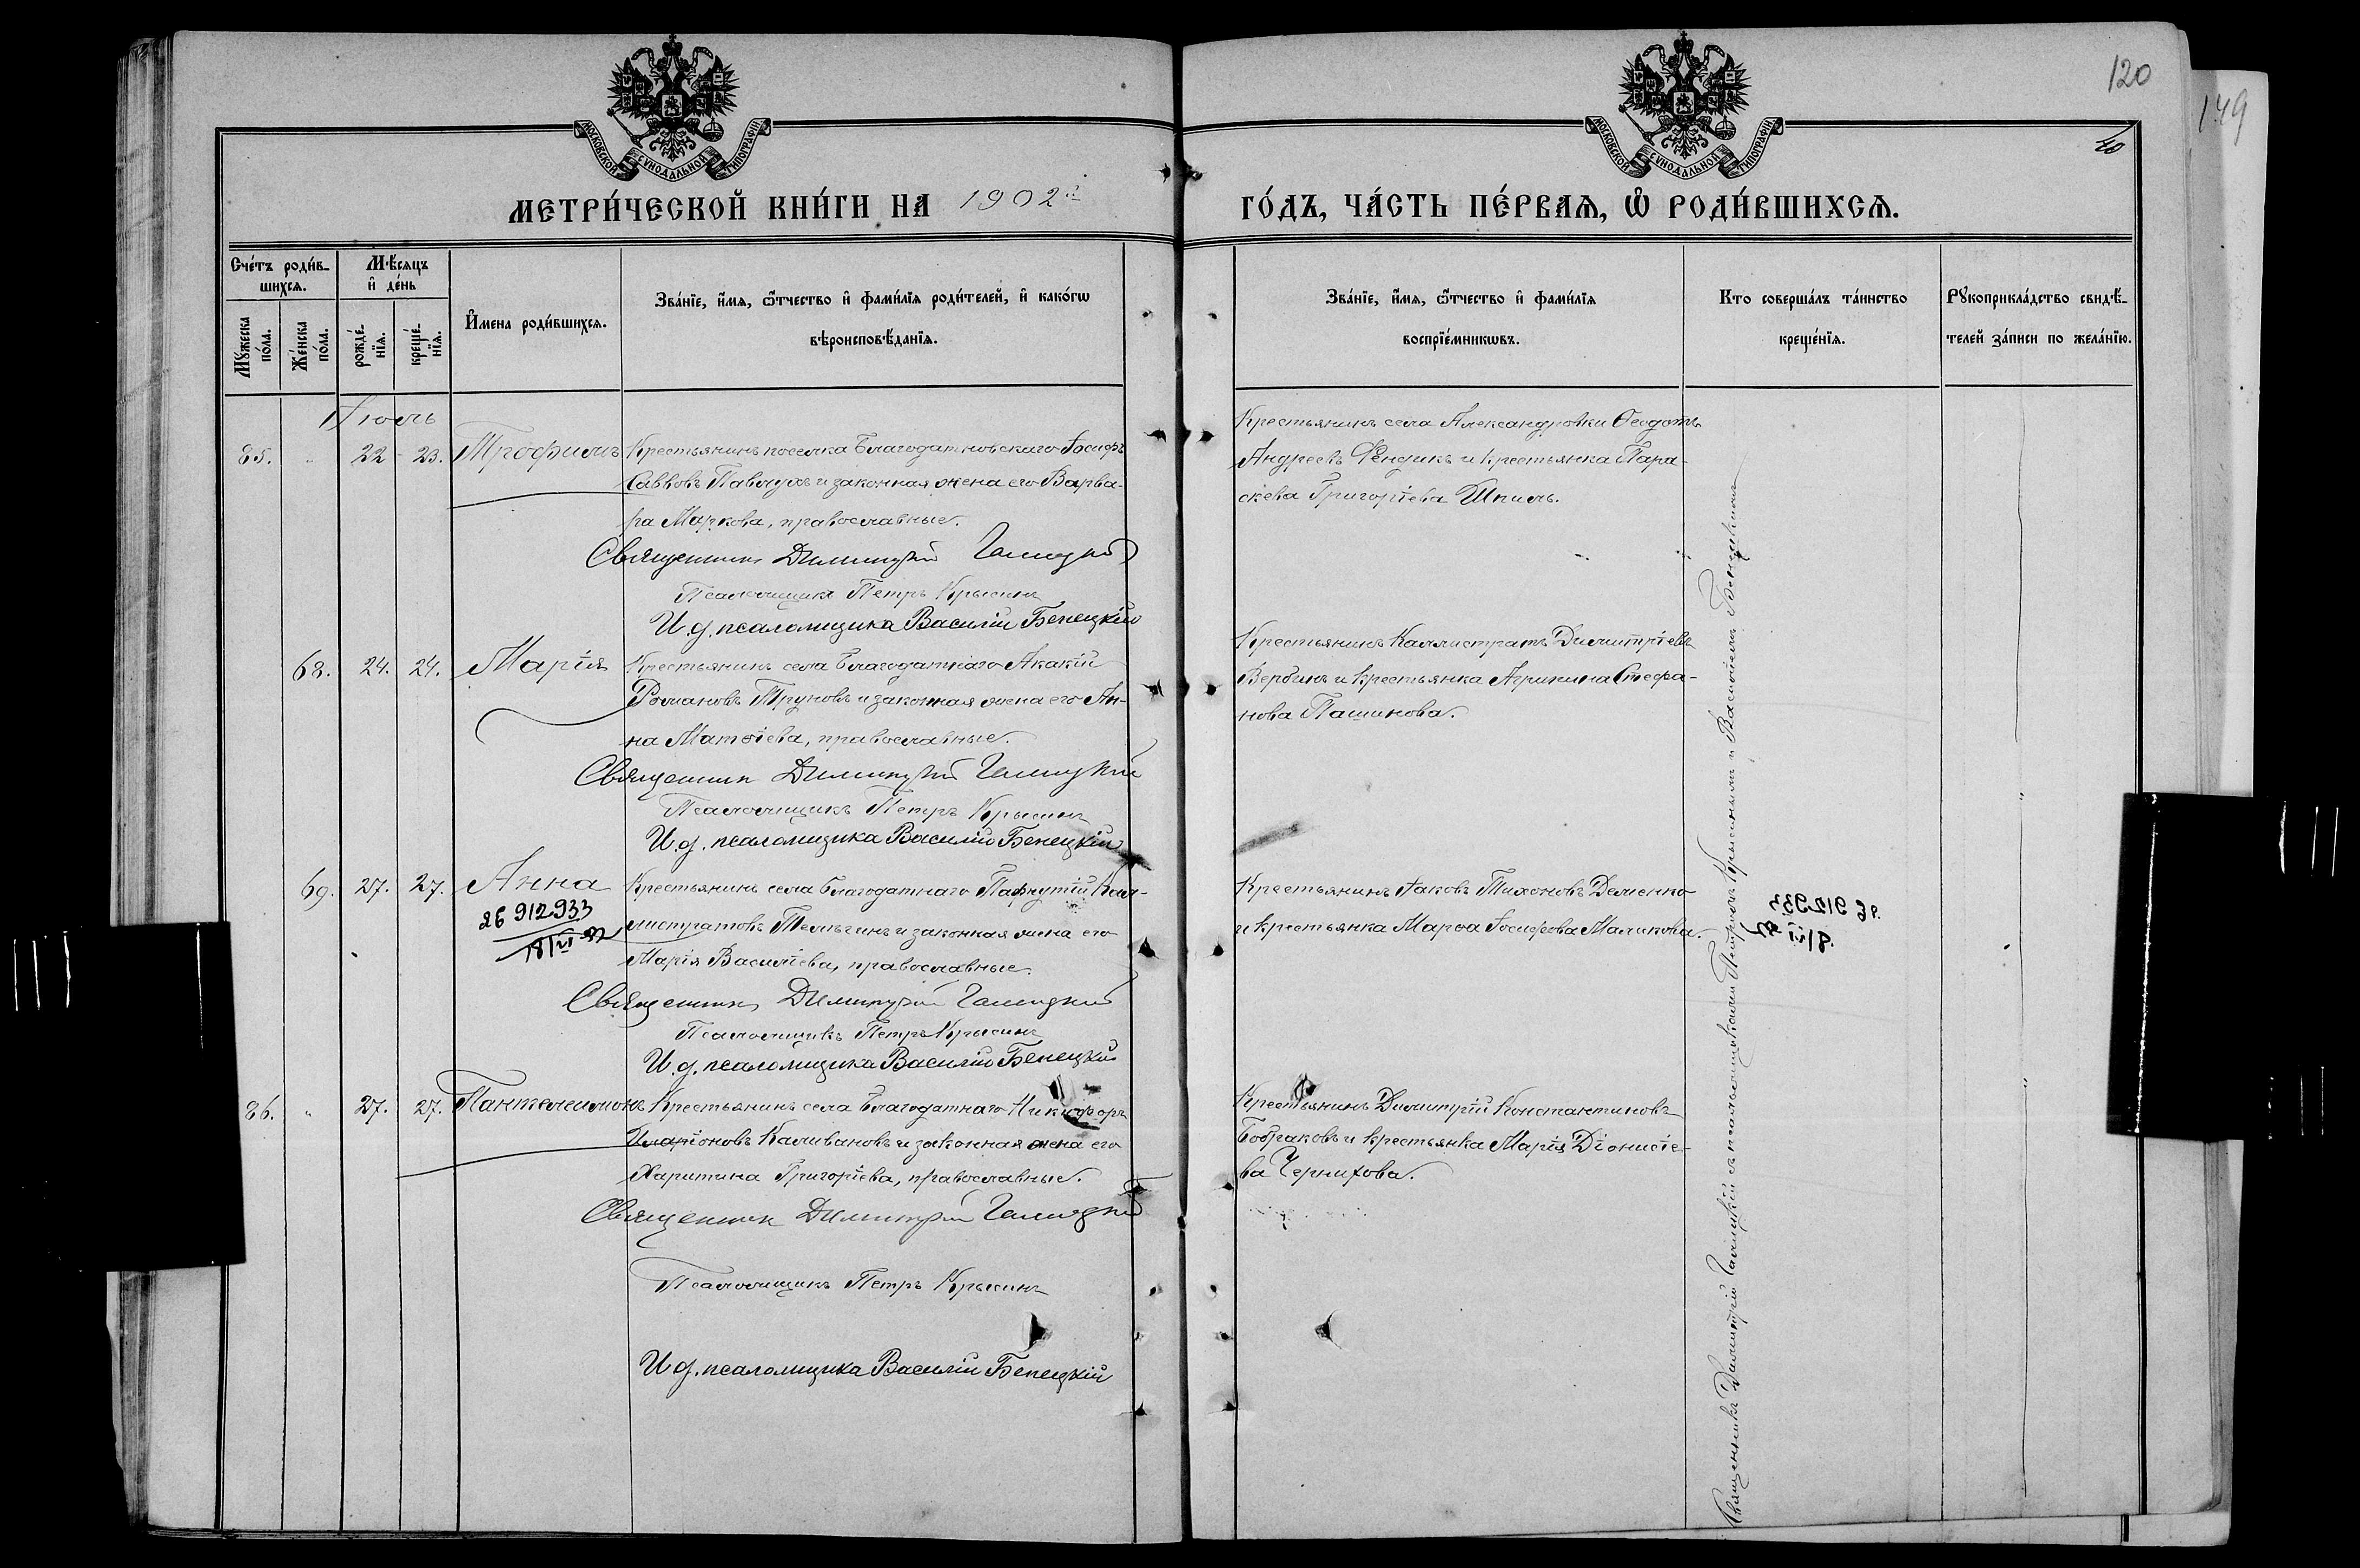 120
149
20
МОСКОВСКОЙ СУНОДАЛЬНОЙ ТИПОГРАФІИ
МОСКОВСКОЙ СУНОДАЛЬНОЙ ТИПОГРАФІИ
МЕТРИ́ЧЕСКОЙ КНИ́ГИ НА 1902й
ГО́ДЪ, ЧА́СТЬ ПЕ́РВАѦ, Ѡ҆ РОДИ́ВШИХСѦ.
Сче́тъ роди́в-
шихсѧ.
Мѣ́сѧцъ
и҆ де́нь
Мꙋ́жеска по́ла.
Же́нска по́ла.
рожде́-
нїѧ.
креще́-
нїѧ.
И҆́мена роди́вшихсѧ.
Зва́нїе, и҆́мѧ, ѻ҆́тчество и҆ фами́лїѧ роди́телей, и҆ како́гѡ
вѣроисповѣ́данїѧ.
Зва́нїе, и҆́мѧ, ѻ҆́тчество и҆ фами́лїѧ
воспрїе́мникѡвъ.
Кто соверша́лъ та́инство
креще́нїѧ.
Рꙋкоприкла́дство свидѣ́-
телей за́писи по жела́нїю.
Іюль
85. " 22 23. Трофимъ Крестьянинъ поселка Благодатновскаго Іосифъ
Саввовъ Павлухъ и законная жена его Варва-
ра Маркова, православные.
Священникъ Димитрій Галицкій
Псаломщикъ Петръ Крысинъ
И.д. псаломщика Василій Бенецкій
Крестьянинъ села Александровки Ѳеодотъ
Андреевъ Фендикъ и крестьянка Пара-
скева Григоріева Шпиль.
68. 24. 24. Марія Крестьянинъ села Благодатнаго Акакій
Романовъ Труновъ и законная жена его Ан-
на Матѳіева, православные.
Священникъ Димитрій Галицкій
Псаломщикъ Петръ Крысинъ
И.д. псаломщика Василій Бенецкій
Крестьянинъ Каллистратъ Димитріевъ
Вербинъ и крестьянка Агрипина Стефа-
нова Пашинова.
69. 27. 27. Анна Крестьянинъ села Благодатнаго Пафнутій Кал-
листратовъ Тельгинъ и законная жена его
Марія Василіева, православные.
26 912933
18/VI
Священникъ Димитрій Галицкій
Псаломщикъ Петръ Крысинъ
И.д. псаломщика Василій Бенецкій
Крестьянинъ Іаковъ Тихоновъ Деменко
и крестьянка Марѳа Іосифова Маликова.
86. " 27. 27. Пантелеимонъ Крестьянинъ села Благодатнаго Никифоръ
Иларіоновъ Каливановъ и законная жена его
Харитина Григоріева, православные.
Священникъ Димитрій Галицкій
Псаломщикъ Петръ Крысинъ
И.д. псаломщика Василій Бенецкій
Крестьянинъ Димитрій Константиновъ
Бобраковъ и крестьянка Марія Діонисіе-
ва Чернихова.
Священникъ Димитрій Галицкій съ псаломщиками Петромъ Крысинымъ и Василіемъ Бенецкимъ